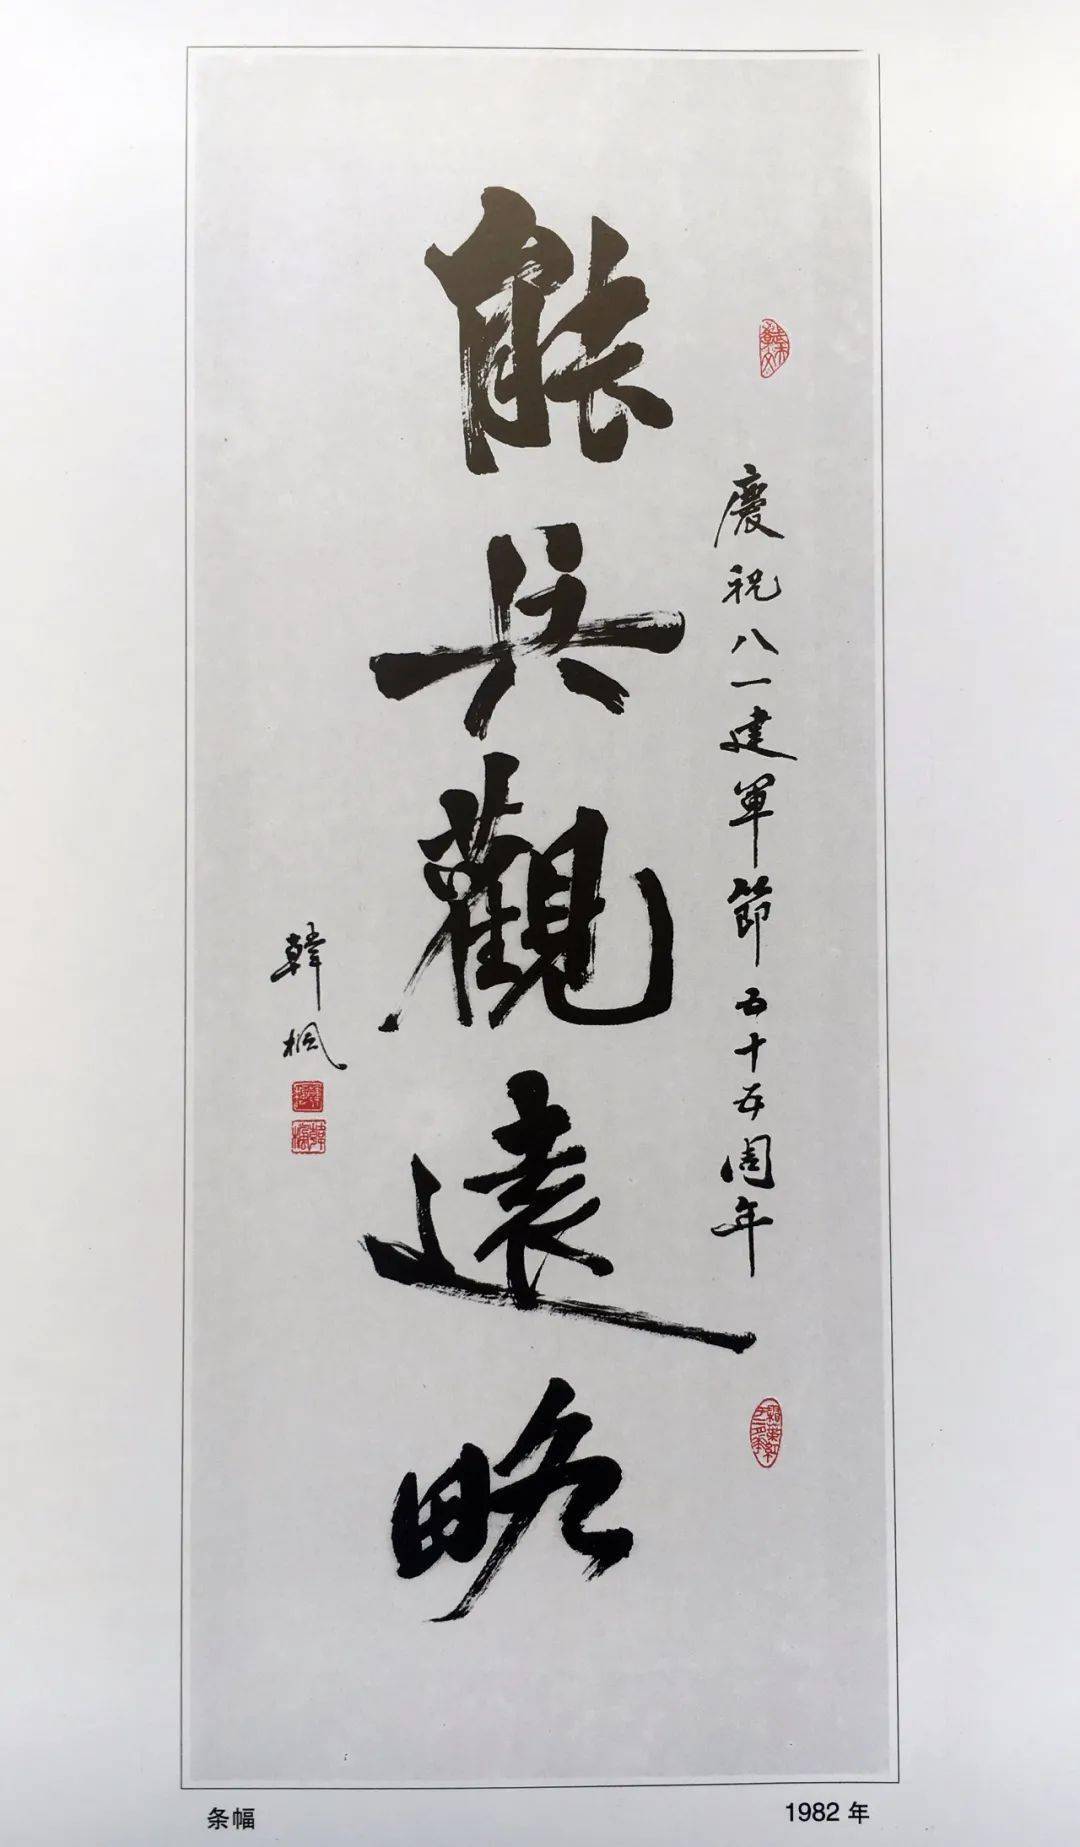 慶祝八一建軍節五十五周年
能兵觀遠略
韓楓
韓楓
条幅
1982 年